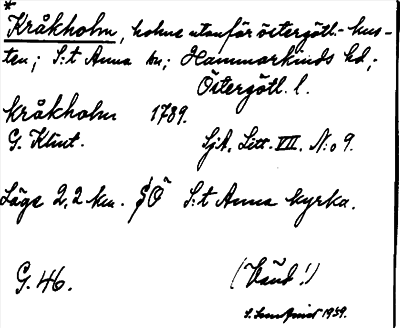 *
Kråkholm, holme utanför östergötl.-kus-
ten; S:t Anna sn; Hammarkinds hd;
Östergötl. l.
Kråkholm 1789.
G. Klint. SjA, Litt. VII. N:o 9.
Läge 2,2 km. SÖ S:t Anna kyrka.
G. 46. (Vänd!)
1939.